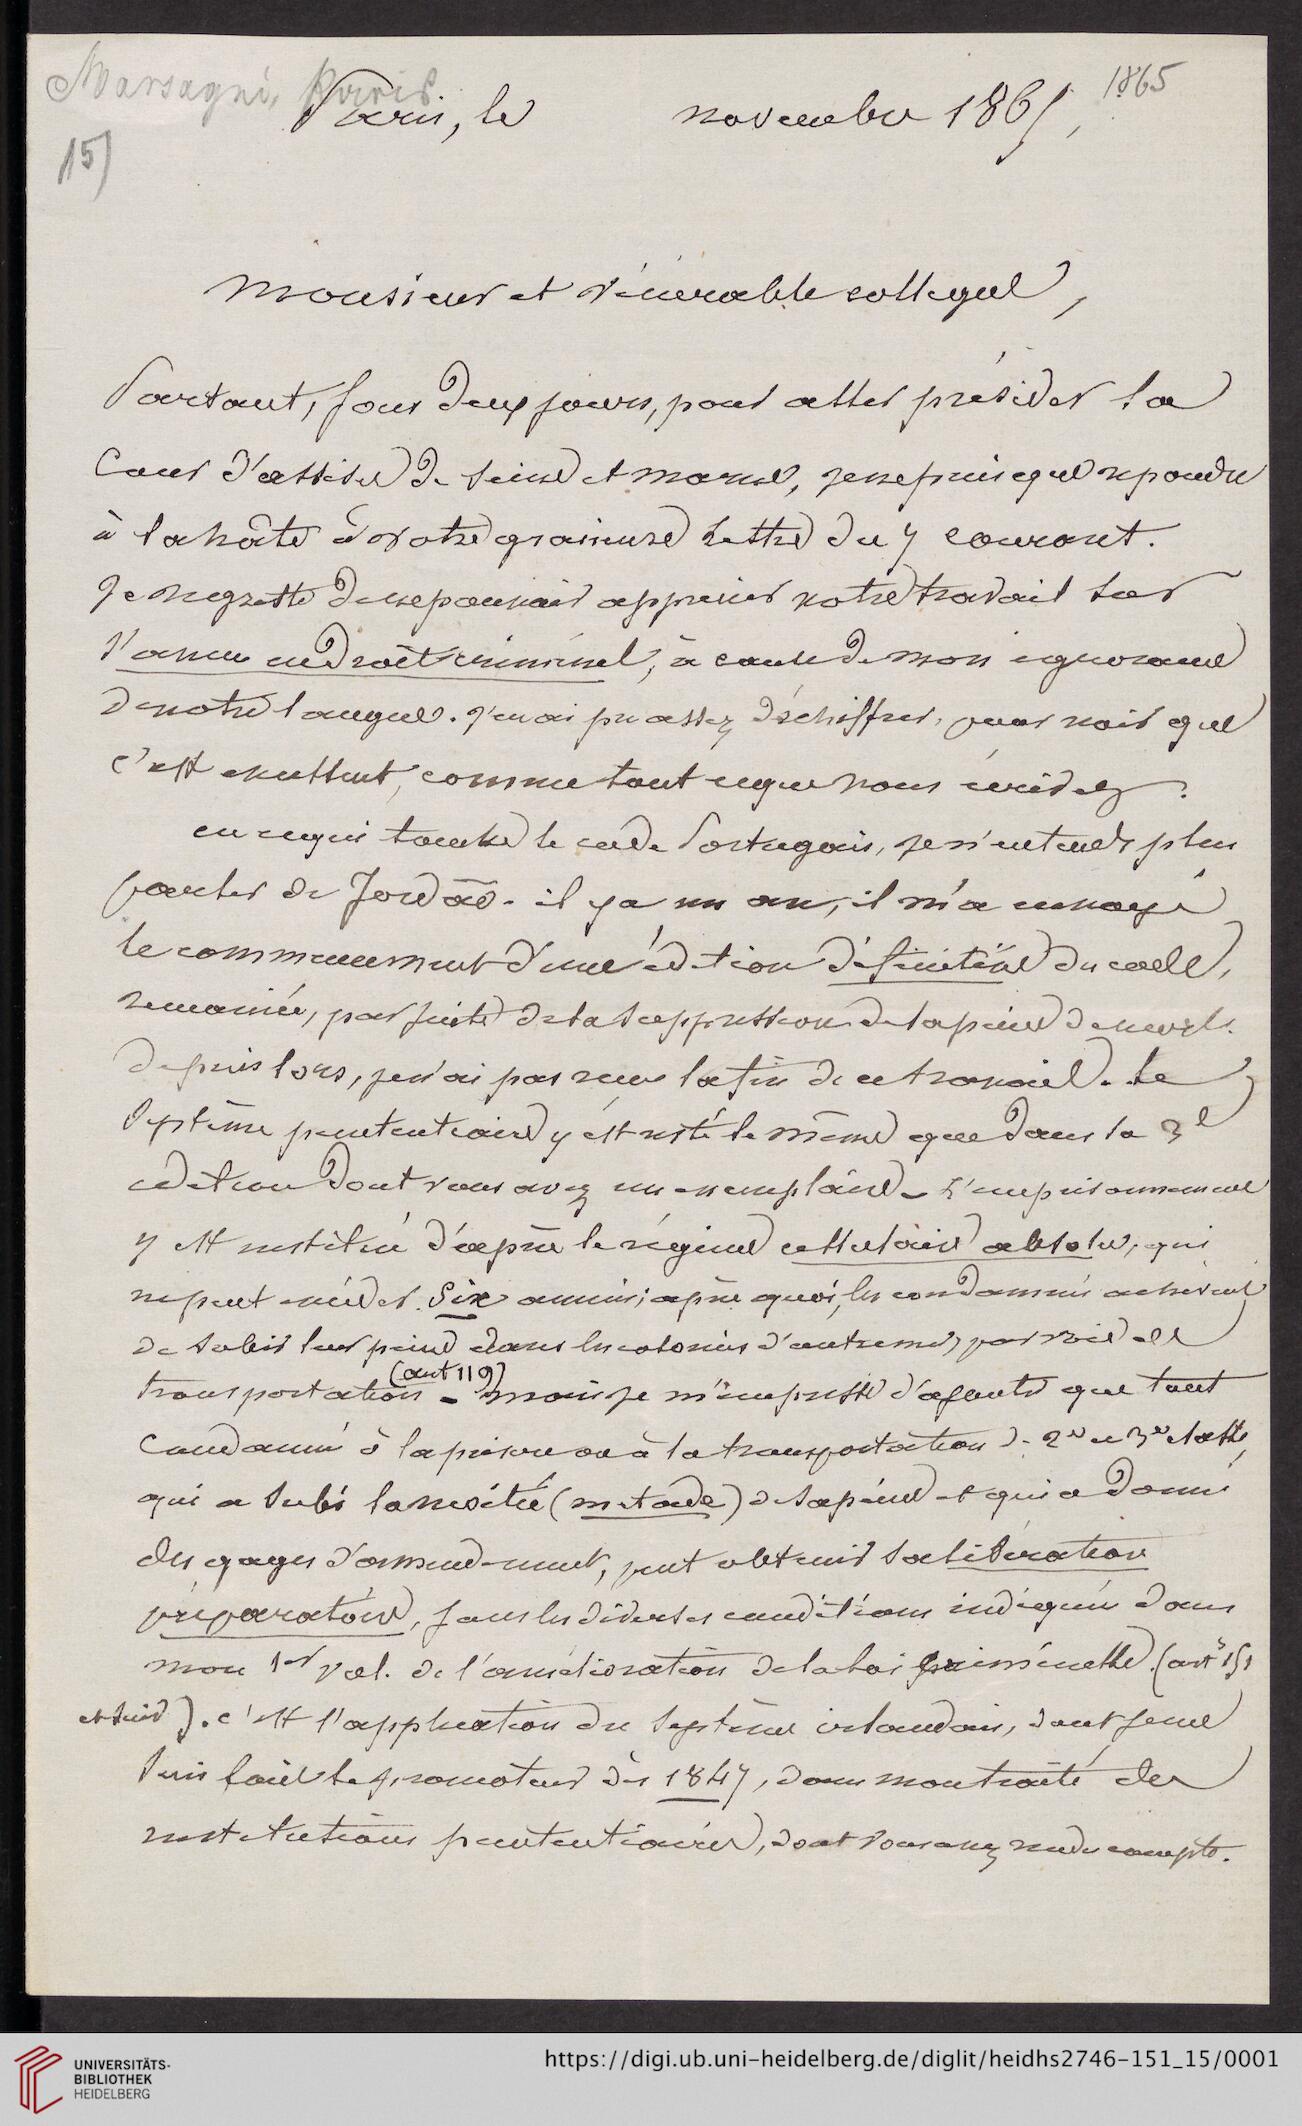 Marsagni, Paris
1865
15)
Paris, le novembre 1865,
Monsieur et vénérable collegue,
Partant, sous deux jours, pour aller présider la
Cour d'assises de Seine et Marne, je ne puis que repondre
à la hâte à votre gracieuse lettre du 7 courant.
Je regrette de ne pouvoir apprecier votre travail sur
l'ancien droit criminel, à cause de mon ignorance
de votre langue. J'en ai pu assez déchiffrer, pour voir que
c'est excellent, comme tout ce que vous écrivez.
en ce qui touche le code Portugais, je n'entends plus
parler de Jordão. il y a un an, il m'a envoyé
le commencement d'une édition définitive du code,
remaniée, par suite de la suppression de la peine de mort.
depuis lors, je n'ai pas recu la fin de ce travail. Le
système penitentiaire y est resté le même que dans la 3e
edition dont vous avez un exemplaire. L'emprisonnement
y est institué d'après le régime cellulaire absolu, qui
ne peut excéder six années; après quoi, les condamnés achèvent
de subir leur peine dans les colonies d'outremer, par voie de
transportation (art 119) - mais je m'empresse d'ajouter que tout
Condamné à la prison ou à la transportation de 2e et 3e classe,
qui a subi la moitié (metade) de sa peine et qui a donné
des gages d'amendement, peut obtenir sa libération
préparatoire, sous les diverses conditions indiquées dans
mon 1er vol. de l'amélioration de la loi criminelle. (art 151
et suiv). c'est l'application du système irlandais, dont je me
suis fait le promoteur dès 1847, dans mon traité des
institutions penitentiaires, dont vous avez rendu compte.
UNIVERSITÄTS-
BIBLIOTHEK
HEIDELBERG
https://digi.ub.uni-heidelberg.de/diglit/heidhs2746-151_15/0001